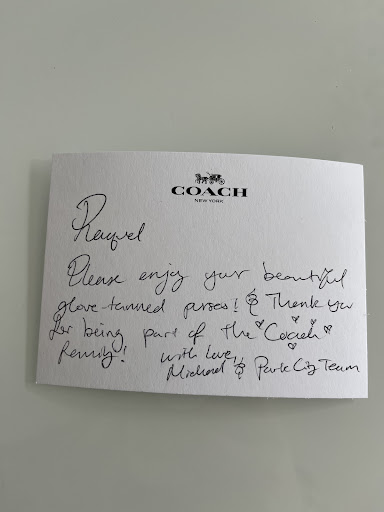 COACH
NEW YORK
Raquel
Please enjoy your beautiful
glove-tanned purses! & Thank you
for being part of the Coach
Family! with love,
Michael & Park City Team